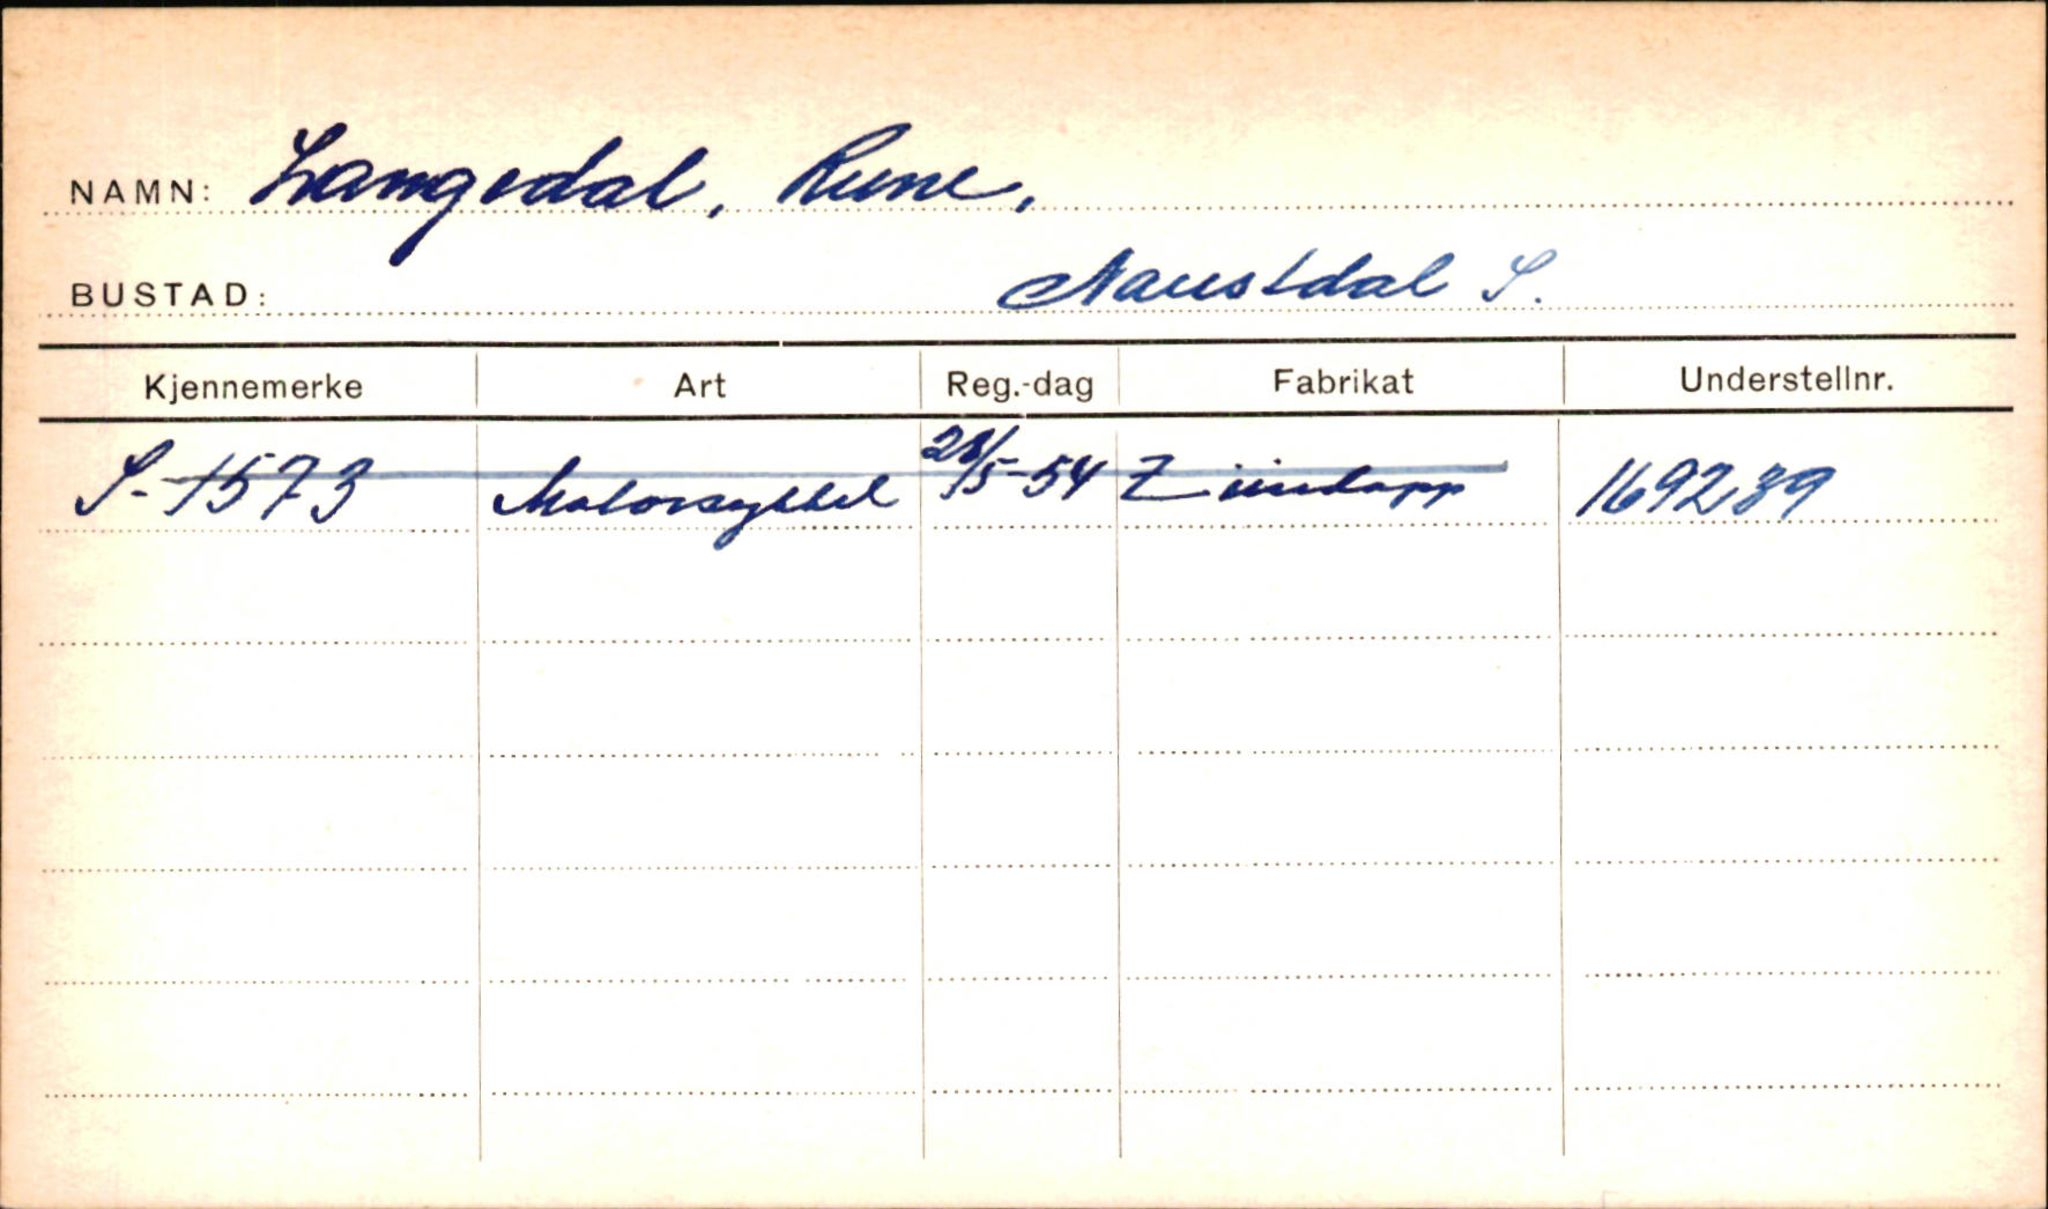 NAMN: Langedal, Rune,
BUSTAD: Naustdal S.
Kjennemerke Art Reg.-dag Fabrikat Understellnr.
S-1573 Motorsykkel 28/5-54 Zündapp 169239